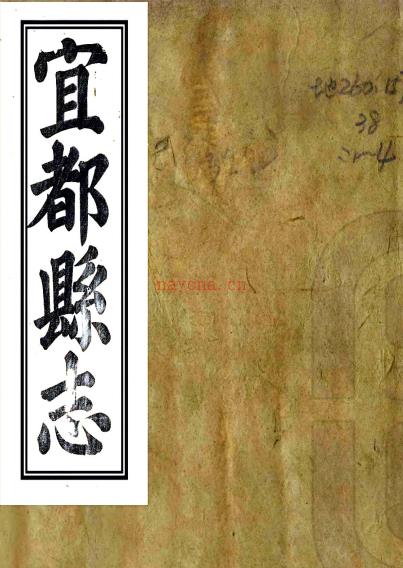 宜都縣志
地260.15
38
nayona.cn